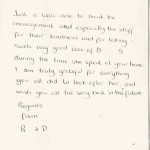 Just a little note to thank the
management and especially the staff
for their kindness and for taking
such very good care of D S
during the time she spent at your home
I am truly grateful for everything
you all did to look after her, and
wish you all the very best in the future
Regards
from
R & D